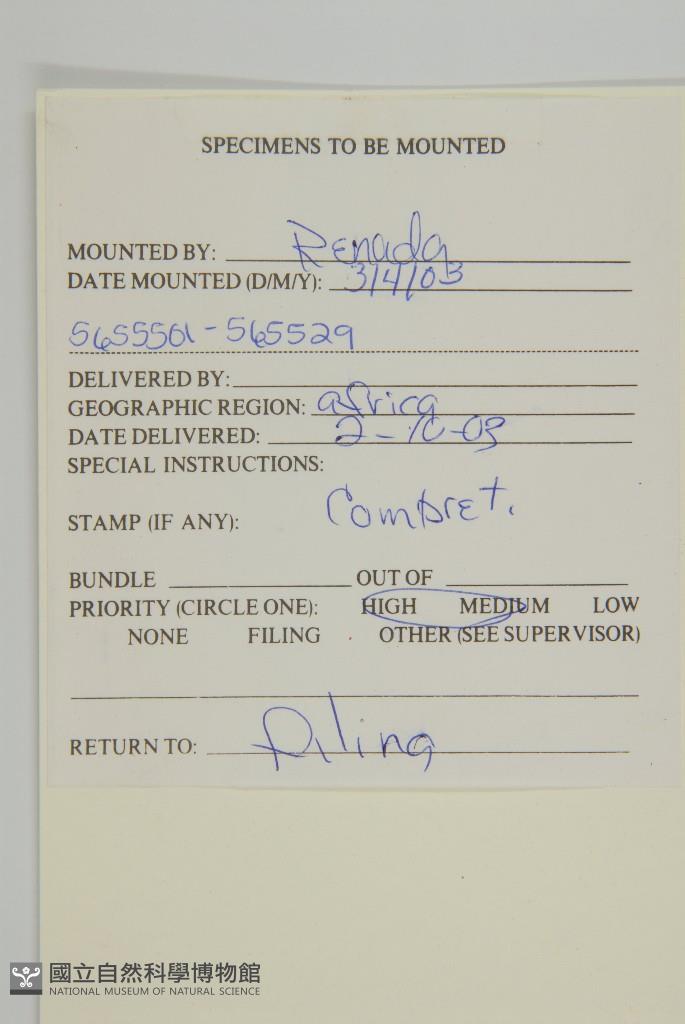 SPECIMENS TO BE MOUNTED
MOUNTED BY: Renada
DATE MOUNTED (D/M/Y): 3/4/03
5655501-565529
DELIVERED BY:
GEOGRAPHIC REGION: africa
DATE DELIVERED: 2-10-03
SPECIAL INSTRUCTIONS:
STAMP (IF ANY): Combret.
BUNDLE OUT OF
PRIORITY (CIRCLE ONE): HIGH MEDIUM LOW
NONE FILING OTHER (SEE SUPERVISOR)
RETURN TO: Filing
國立自然科學博物館
NATIONAL MUSEUM OF NATURAL SCIENCE